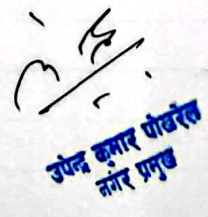 उपेन्द्र कुमार पोखरेल
नगर प्रमुख